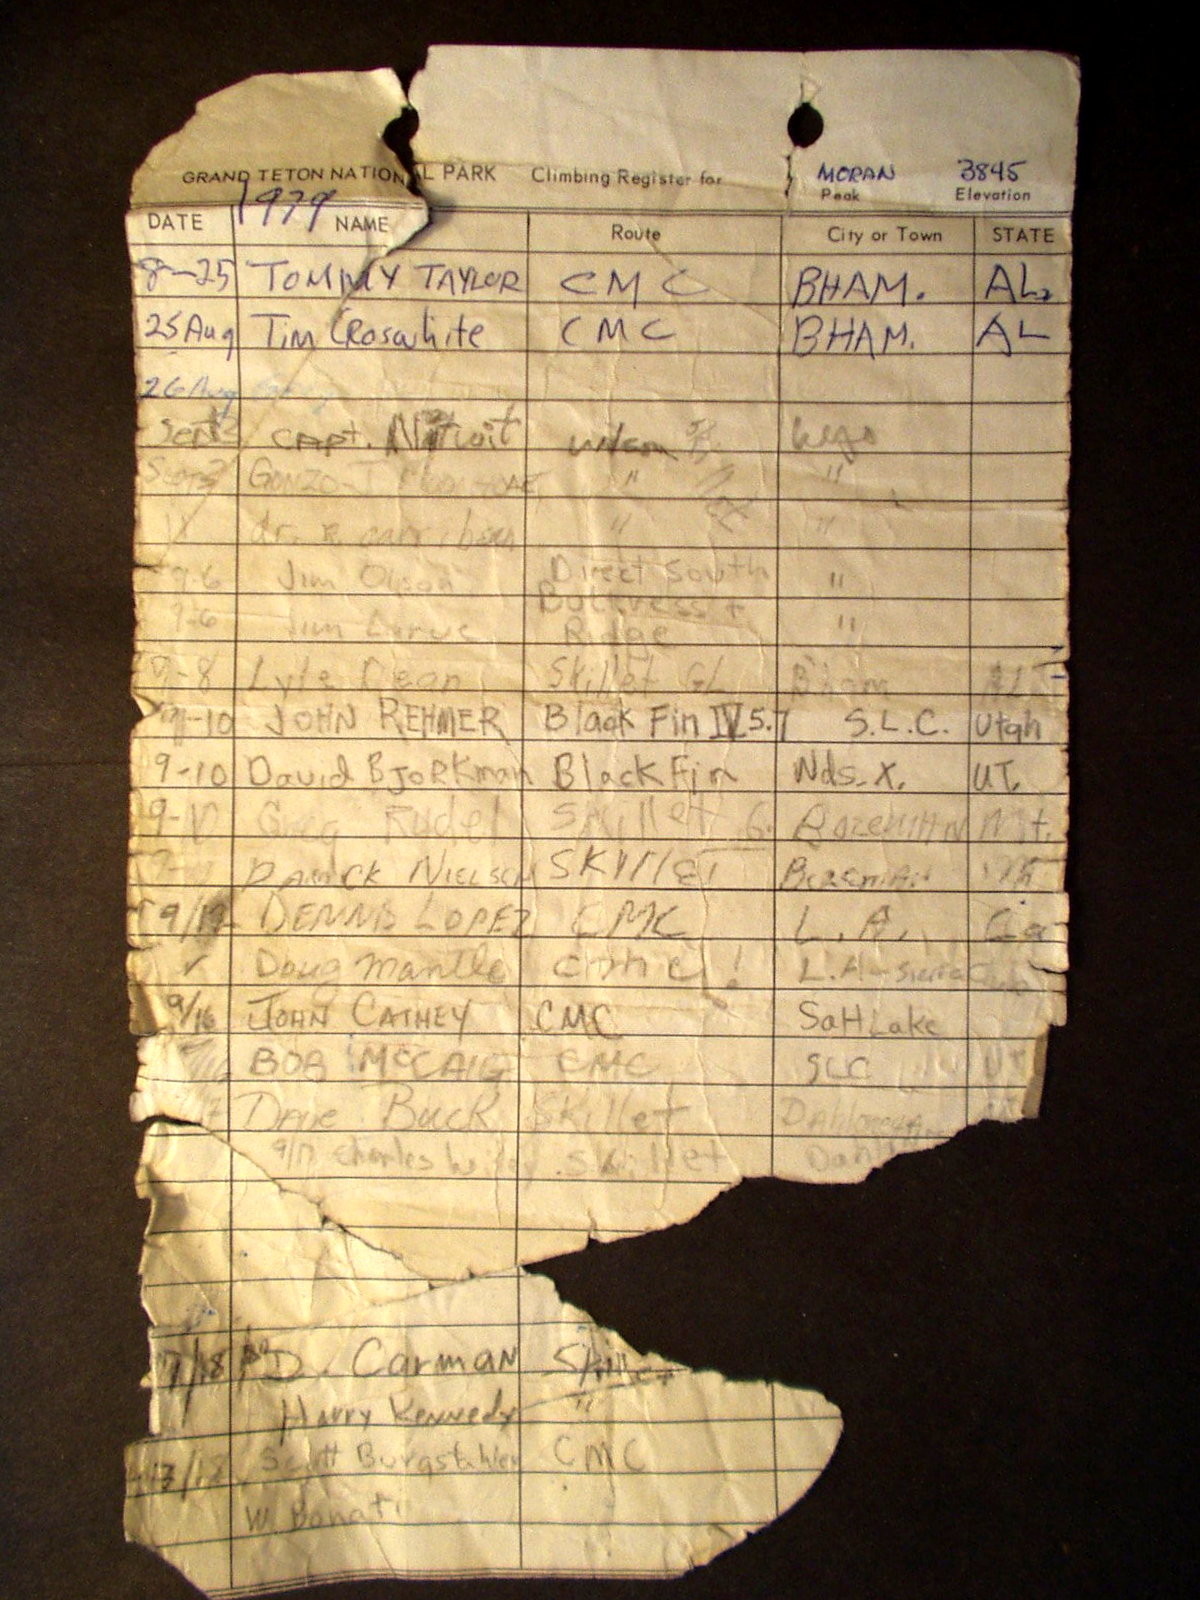 GRAND TETON NATIONAL PARK Climbing Register for MORAN 3845
Peak Elevation
1979
DATE NAME Route City or Town STATE
8-25 TOMMY TAYLOR CMC BHAM. AL.
25 Aug Tim Crosswhite CMC BHAM. AL
26 Aug
Sept Capt. Wilson
Gonzo " "
dr. " "
9-6 Jim Olson Direct South "
Buttress +
9-6 Jim Ridge "
9-8 Lyle Dean Skillet GL B'ham AL
9-10 JOHN REHMER Black Fin IV 5.7 S.L.C. Utah
9-10 David Bjorkman Black Fin Nds. X. UT.
9-10 Greg Rudel Skillet G. Bozeman Mt.
9- Nielsen SKILLET Bozeman
9/12 Dennis Lopez CMC L.A. Ca
Doug Mantle CMC! L.A.-Sierra Club
9/16 John Cathey CMC Salt Lake
BOB McCAIG CMC SLC UT
Dave Buck Skillet Dahlonega
9/17 Charles Skillet
7/18 D. Carman Skillet
Harry Kennedy "
Scott Burgstahler CMC
W.